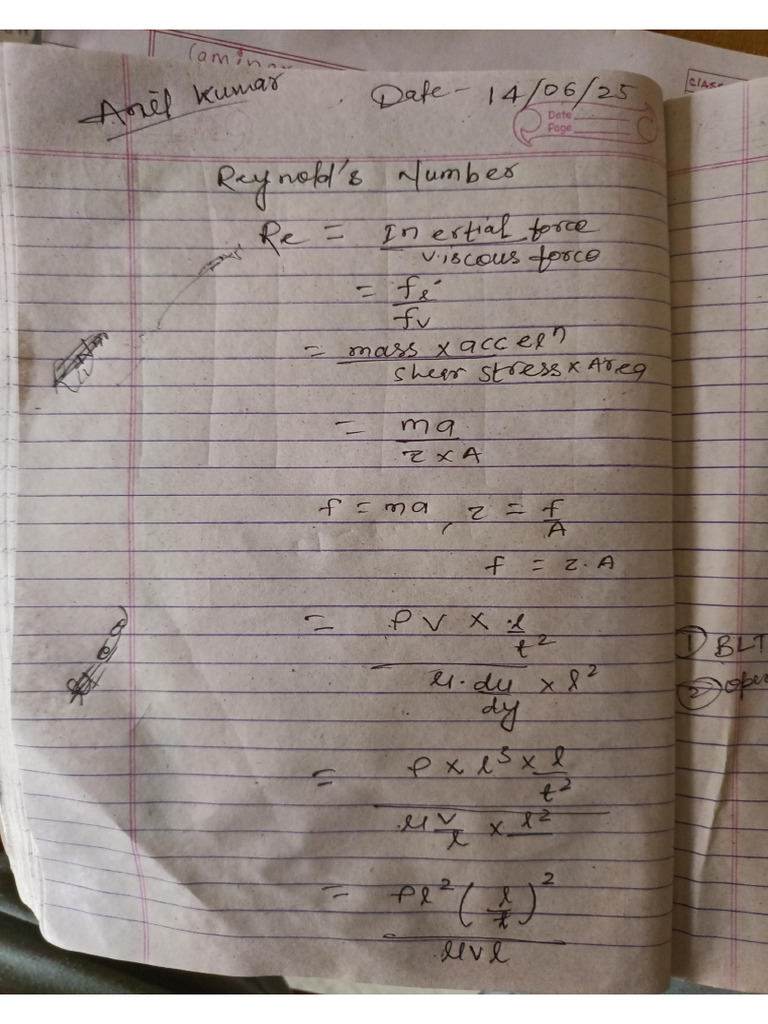 Lamina
Anil Kumar
Date - 14/06/25
CLASS
Date
Page
Reynold's Number
Re = Inertial force / viscous force
= fi / fv
= mass x accel^n / shear stress x Area
= ma / τ x A
f = ma, τ = f / A
f = τ . A
= ρ v x l / t^2 / μ . du / dy x l^2
= ρ x l^3 x l / t^2 / μ v / l x l^2
= ρ l^2 (l / t)^2 / μ v l
① BLT
② oper